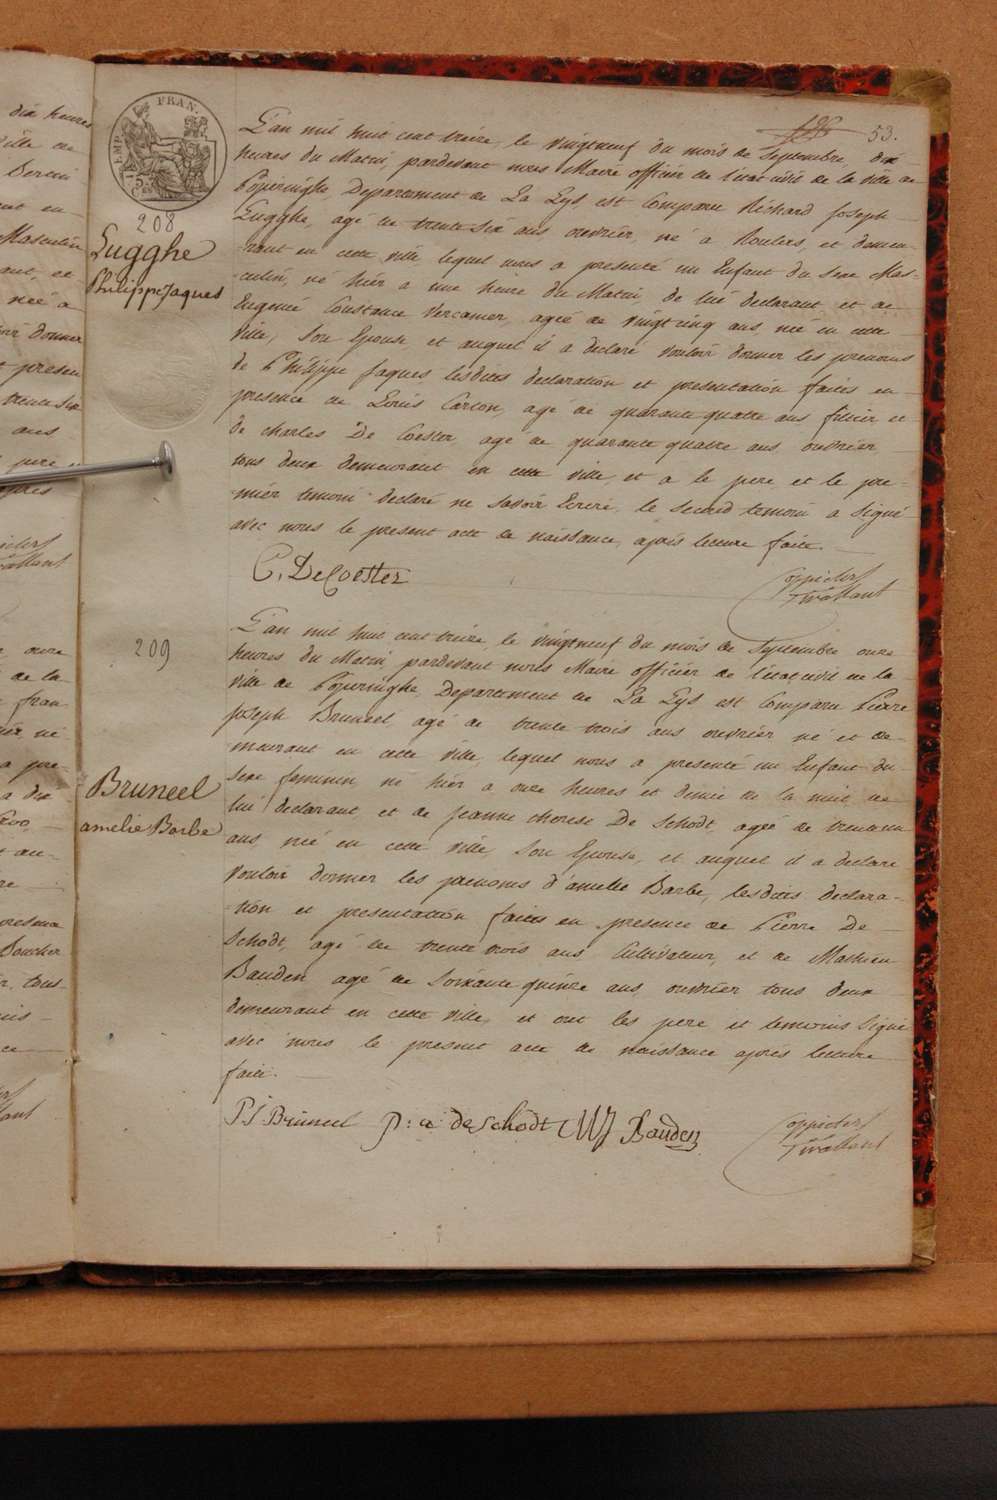 53.
TIMP. FRAN.
208
Lugghe
Philippe Jaques
L'an mil huit cent treize, le vingtneuf du mois de Septembre, dix
heures du Matin, pardevant nous Maire officier de l'état civil de la ville de
Poperinghe, Departement de La Lys est Comparu Richard Joseph
Lugghe, agé de trente six ans ouvrier, né a Roulers, et demeu-
-rant en cette ville lequel nous a presenté un Enfant du sexe Mas-
-culin, né hier a une heure du Matin, de lui declarant et de
Eugenie Constance Vercamer, agée de vingt cinq ans née en cette
ville, son Epouse et auquel il a declaré vouloir donner les prenoms
de Philippe Jaques lesdites declaration et presentation faites en
presence de Louis Carton, agé de quarante quatre ans filtier et
de charles De Coester agé de quarante quatre ans, ouvrier
tous deux demeurant en cette ville, et a le pere et le pre-
-mier temoin declaré ne savoir Ecrire, le second temoin a signé
avec nous le present acte de naissance, après lecture faite.
C. De Coester
209
Bruneel
amelie Barbe
L'an mil huit cent treize, le vingtneuf du mois de Septembre onze
heures du Matin, pardevant nous Maire officier de l'état civil de la
ville de Poperinghe, Departement de La Lys est Comparu Pierre
Joseph Bruneel agé de trente trois ans ouvrier né et de-
meurant en cette ville, lequel nous a presenté un Enfant du
sexe feminin, né hier a onze heures et demie de la nuit de
lui declarant et de Jeanne therese De Schodt, agée de trente un
ans, née en cette ville, son Epouse, et auquel il a declaré
vouloir donner les prenoms d'amelie Barbe, lesdites declara-
-tion et presentation faites en presence de Pierre De
Schodt, agé de trente trois ans Cultivateur, et de Mathieu
Bauden agé de soixante quinze ans, ouvrier tous deux
demeurant en cette ville, et ont les pere et temoins signé
avec nous le present acte de naissance après lecture
faite.
P J Bruneel p: a: de schodt MJ Bauden